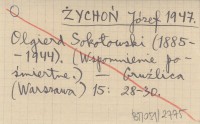 O ŻYCHOŃ Józef 1947.
Olgierd Sokołowski (1885-
-1944). (Wspomnienie po-
śmiertne.) — Gruźlica
(Warszawa) 15: 28-30.